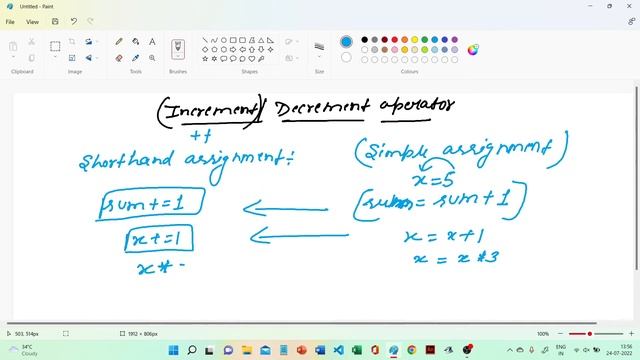 Untitled - Paint
File View
Clipboard Image Tools Brushes Shapes Size Colours
(Increment) / Decrement operator
++
Shorthand assignment:
(Simple assignment)
x=5
sum+=1
(sum = sum+1)
x+=1
x = x+1
x *
x = x*3
503, 514px
1912 × 806px
100%
34°C
Cloudy
ENG
IN
13:56
24-07-2022